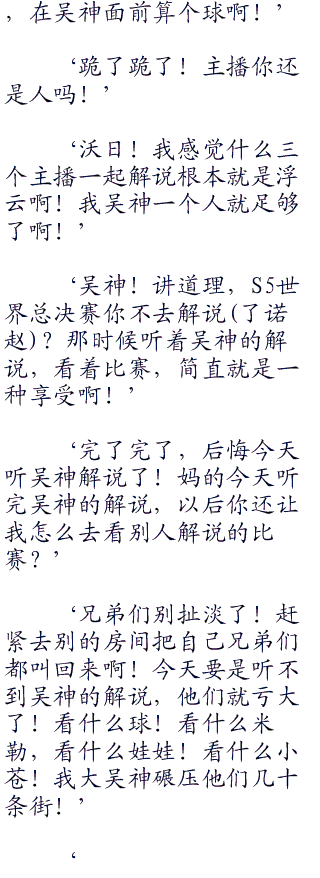 ，在吴神面前算个球啊！’
‘跪了跪了！主播你还
是人吗！’
‘沃日！我感觉什么三
个主播一起解说根本就是浮
云啊！我吴神一个人就足够
了啊！’
‘吴神！讲道理，S5世
界总决赛你不去解说(了诺
赵)？那时候听着吴神的解
说，看着比赛，简直就是一
种享受啊！’
‘完了完了，后悔今天
听吴神解说了！妈的今天听
完吴神的解说，以后你还让
我怎么去看别人解说的比
赛？’
‘兄弟们别扯淡了！赶
紧去别的房间把自己兄弟们
都叫回来啊！今天要是听不
到吴神的解说，他们就亏大
了！看什么球！看什么米
勒，看什么娃娃！看什么小
苍！我大吴神碾压他们几十
条街！’
‘